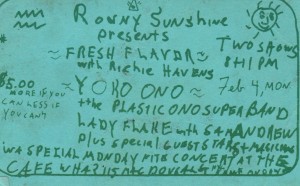 Ronny Sunshine
presents
FRESH FLAVOR
with Richie Havens
TWO SHOWS
8+11 PM
$5.00
MORE IF YOU
CAN LESS IF
YOU CAN'T
YOKO ONO
Feb 4, MON
+ the PLASTIC ONO SUPER BAND
LADY FLAKE with SAM ANDREW
plus special GUEST STARS + MAGICIAN
IN A SPECIAL MONDAY NITE CONCERT AT THE
CAFE WHA? 115 McDOUGAL ST